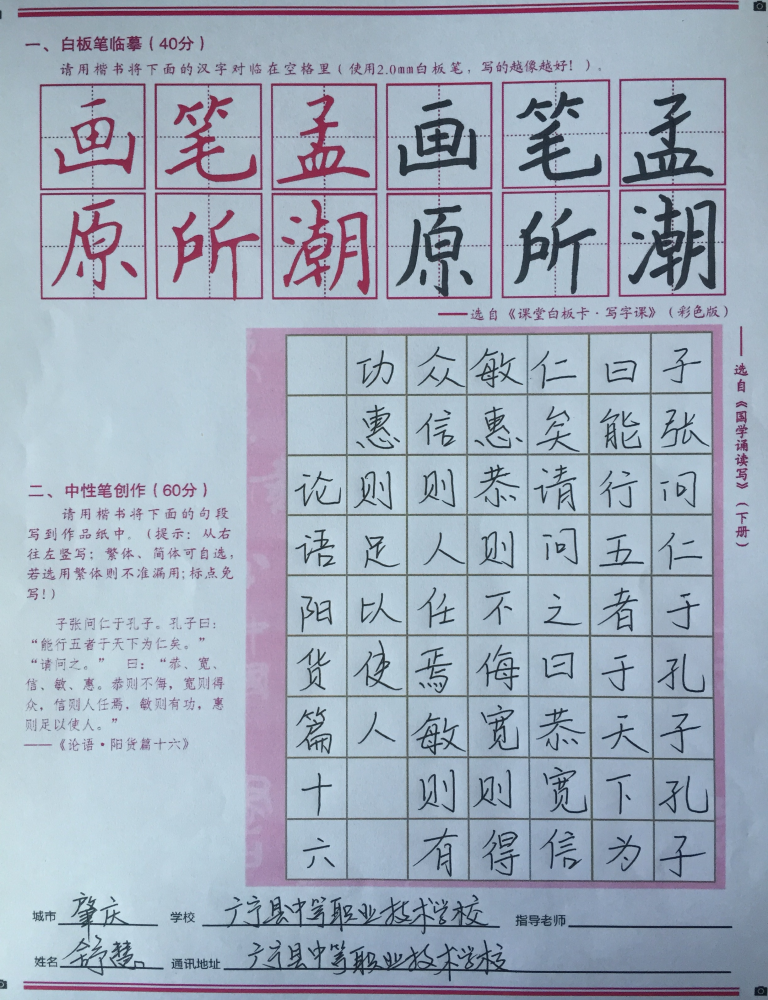 一、白板笔临摹（40分）
请用楷书将下面的汉字对临在空格里（使用2.0mm白板笔，写的越像越好！）。
画笔孟画笔孟
原所潮原所潮
——选自《课堂白板卡·写字课》（彩色版）
——选自《国学诵读写》（下册）
二、中性笔创作（60分）
请用楷书将下面的句段
写到作品纸中。（提示：从右
往左竖写；繁体、简体可自选，
若选用繁体则不准漏用；标点免
写！）
子张问仁于孔子。孔子曰：
“能行五者于天下为仁矣。”
“请问之。” 曰：“恭、宽、
信、敏、惠。恭则不侮，宽则得
众，信则人任焉，敏则有功，惠
则足以使人。”
——《论语·阳货篇十六》
子张问仁于孔子孔子
曰能行五者于天下为
仁矣请问之曰恭宽信
敏惠恭则不侮宽则得
众信则人任焉敏则有
功惠则足以使人
论语阳货篇十六
城市 肇庆 学校 广宁县中等职业技术学校 指导老师
姓名 舒慧 通讯地址 广宁县中等职业技术学校